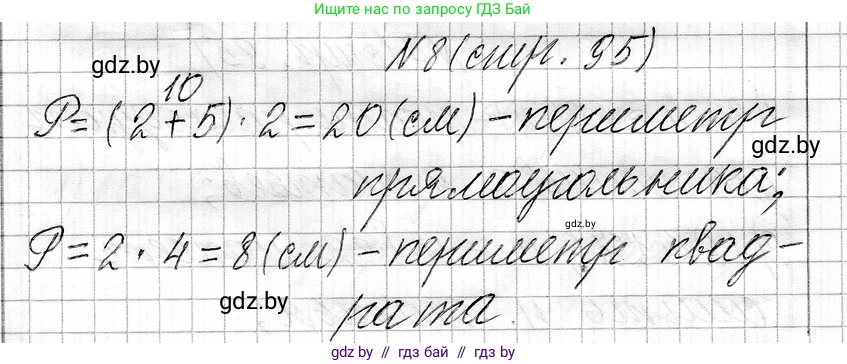 Ищите нас по запросу ГДЗ Бай
gdz.by
N8 (стр. 95)
10
P = (2 + 5) · 2 = 20 (см) – периметр
gdz.by
прямоугольника;
gdz.by
P = 2 · 4 = 8 (см) – периметр квад-
gdz.by
рата.
gdz.by // гдз бай // gdz.by